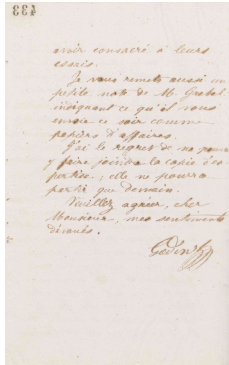 433
avoir consacré à leurs
essais.
Je vous remets aussi un
petite note de M. Grebel
indiquant ce qu'il vous
envoie ce soir comme
papiers d'affaires.
J'ai le regret de ne pouvoir
y faire joindre la copie d'ex
pertise; elle ne pourra
partir que demain.
Veuillez agréer, cher
Monsieur, mes sentiments
dévoués.
Godin